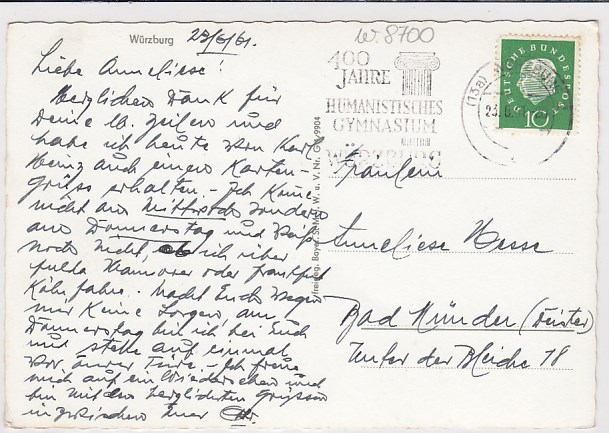 Würzburg 23/6/61.
W 8700
Liebe Anneliese!
Herzlichen Dank für
Deine lb. Zeilen und
habe ich heute von Karl
Heinz auch einen Karten-
gruss erhalten - Ich komme
nicht am Mittwoch sondern
am Donnerstag und weiss
noch nicht, ob ich über
Hannover oder Frankfurt
fahre. Macht Euch wegen
mir keine Sorgen, am
Donnerstag bin ich bei Euch
und stehe auf einmal
vor Türe. - Ich freue
mich auf ein Wiedersehen und
bin mit den herzlichsten Grüssen
inzwischen Euer
freigeg. Bayer. St. Min. W. u. V. Nr. G 9904
400
JAHRE
HUMANISTISCHES
GYMNASIUM
WÜRZBURG
(13a)
23.6.
DEUTSCHE BUNDESPOST
10
Fräulein
Anneliese Hesse
Bad Münder (Deister)
Unter der Bleiche 18